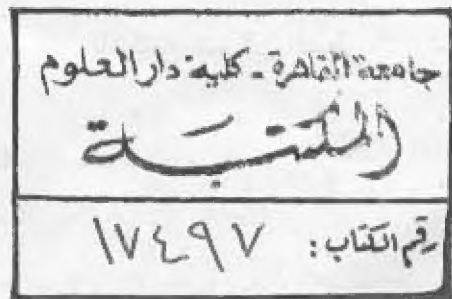 جامعة القاهرة - كلية دار العلوم
المكتبة
رقم الكتاب : ١٧٤٩٧